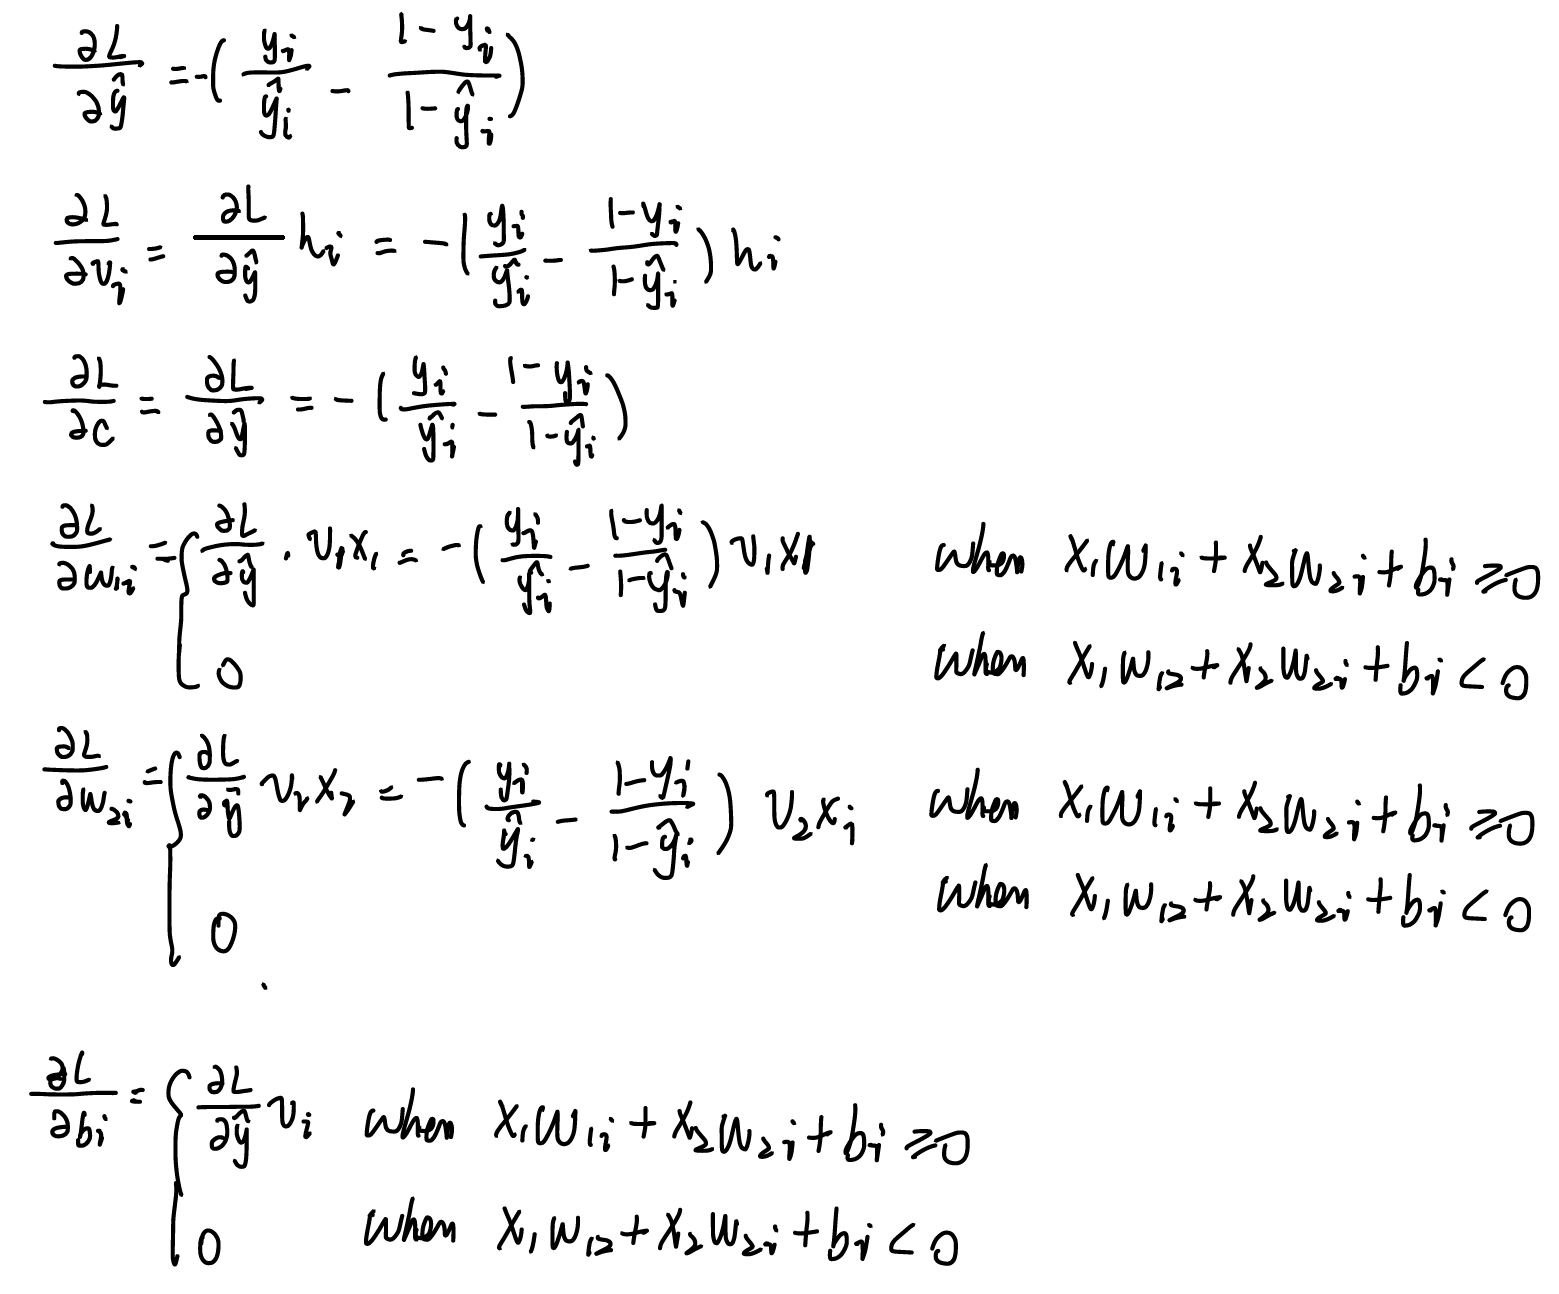 ∂L/∂ŷ = -( y_i/ŷ_i - (1-y_i)/(1-ŷ_i) )
∂L/∂v_i = ∂L/∂ŷ h_i = -( y_i/ŷ_i - (1-y_i)/(1-ŷ_i) ) h_i
∂L/∂c = ∂L/∂ŷ = -( y_i/ŷ_i - (1-y_i)/(1-ŷ_i) )
∂L/∂w_{1i} = { ∂L/∂ŷ · v_1 x_1 = -( y_i/ŷ_i - (1-y_i)/(1-ŷ_i) ) v_1 x_1 when x_1 w_{1i} + x_2 w_{2i} + b_i ≥ 0
0 when x_1 w_{12} + x_2 w_{2i} + b_i < 0
∂L/∂w_{2i} = { ∂L/∂ŷ v_2 x_2 = -( y_i/ŷ_i - (1-y_i)/(1-ŷ_i) ) v_2 x_i when x_1 w_{1i} + x_2 w_{2i} + b_i ≥ 0
0 when x_1 w_{12} + x_2 w_{2i} + b_i < 0
∂L/∂b_i = { ∂L/∂ŷ v_i when x_1 w_{1i} + x_2 w_{2i} + b_i ≥ 0
0 when x_1 w_{12} + x_2 w_{2i} + b_i < 0